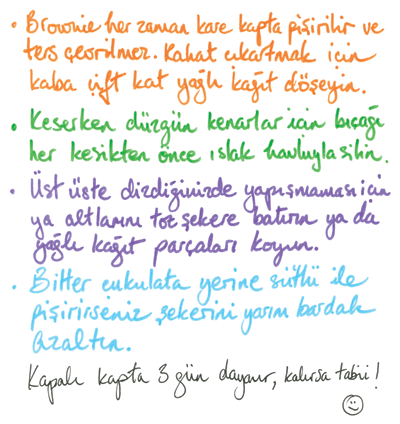 • Brownie her zaman kare kapta pişirilir ve
ters çevrilmez. Rahat çıkartmak için
kaba çift kat yağlı kağıt döşeyin.
• Keserken düzgün kenarlar için bıçağı
her kesikten önce ıslak havluyla silin.
• Üst üste dizdiğinizde yapışmaması için
ya altlarını toz şekere batırın ya da
yağlı kağıt parçaları koyun.
• Bitter çukulata yerine sütlü ile
pişirirseniz şekerini yarım bardak
azaltın.
Kapalı kapta 3 gün dayanır, kalırsa tabii!